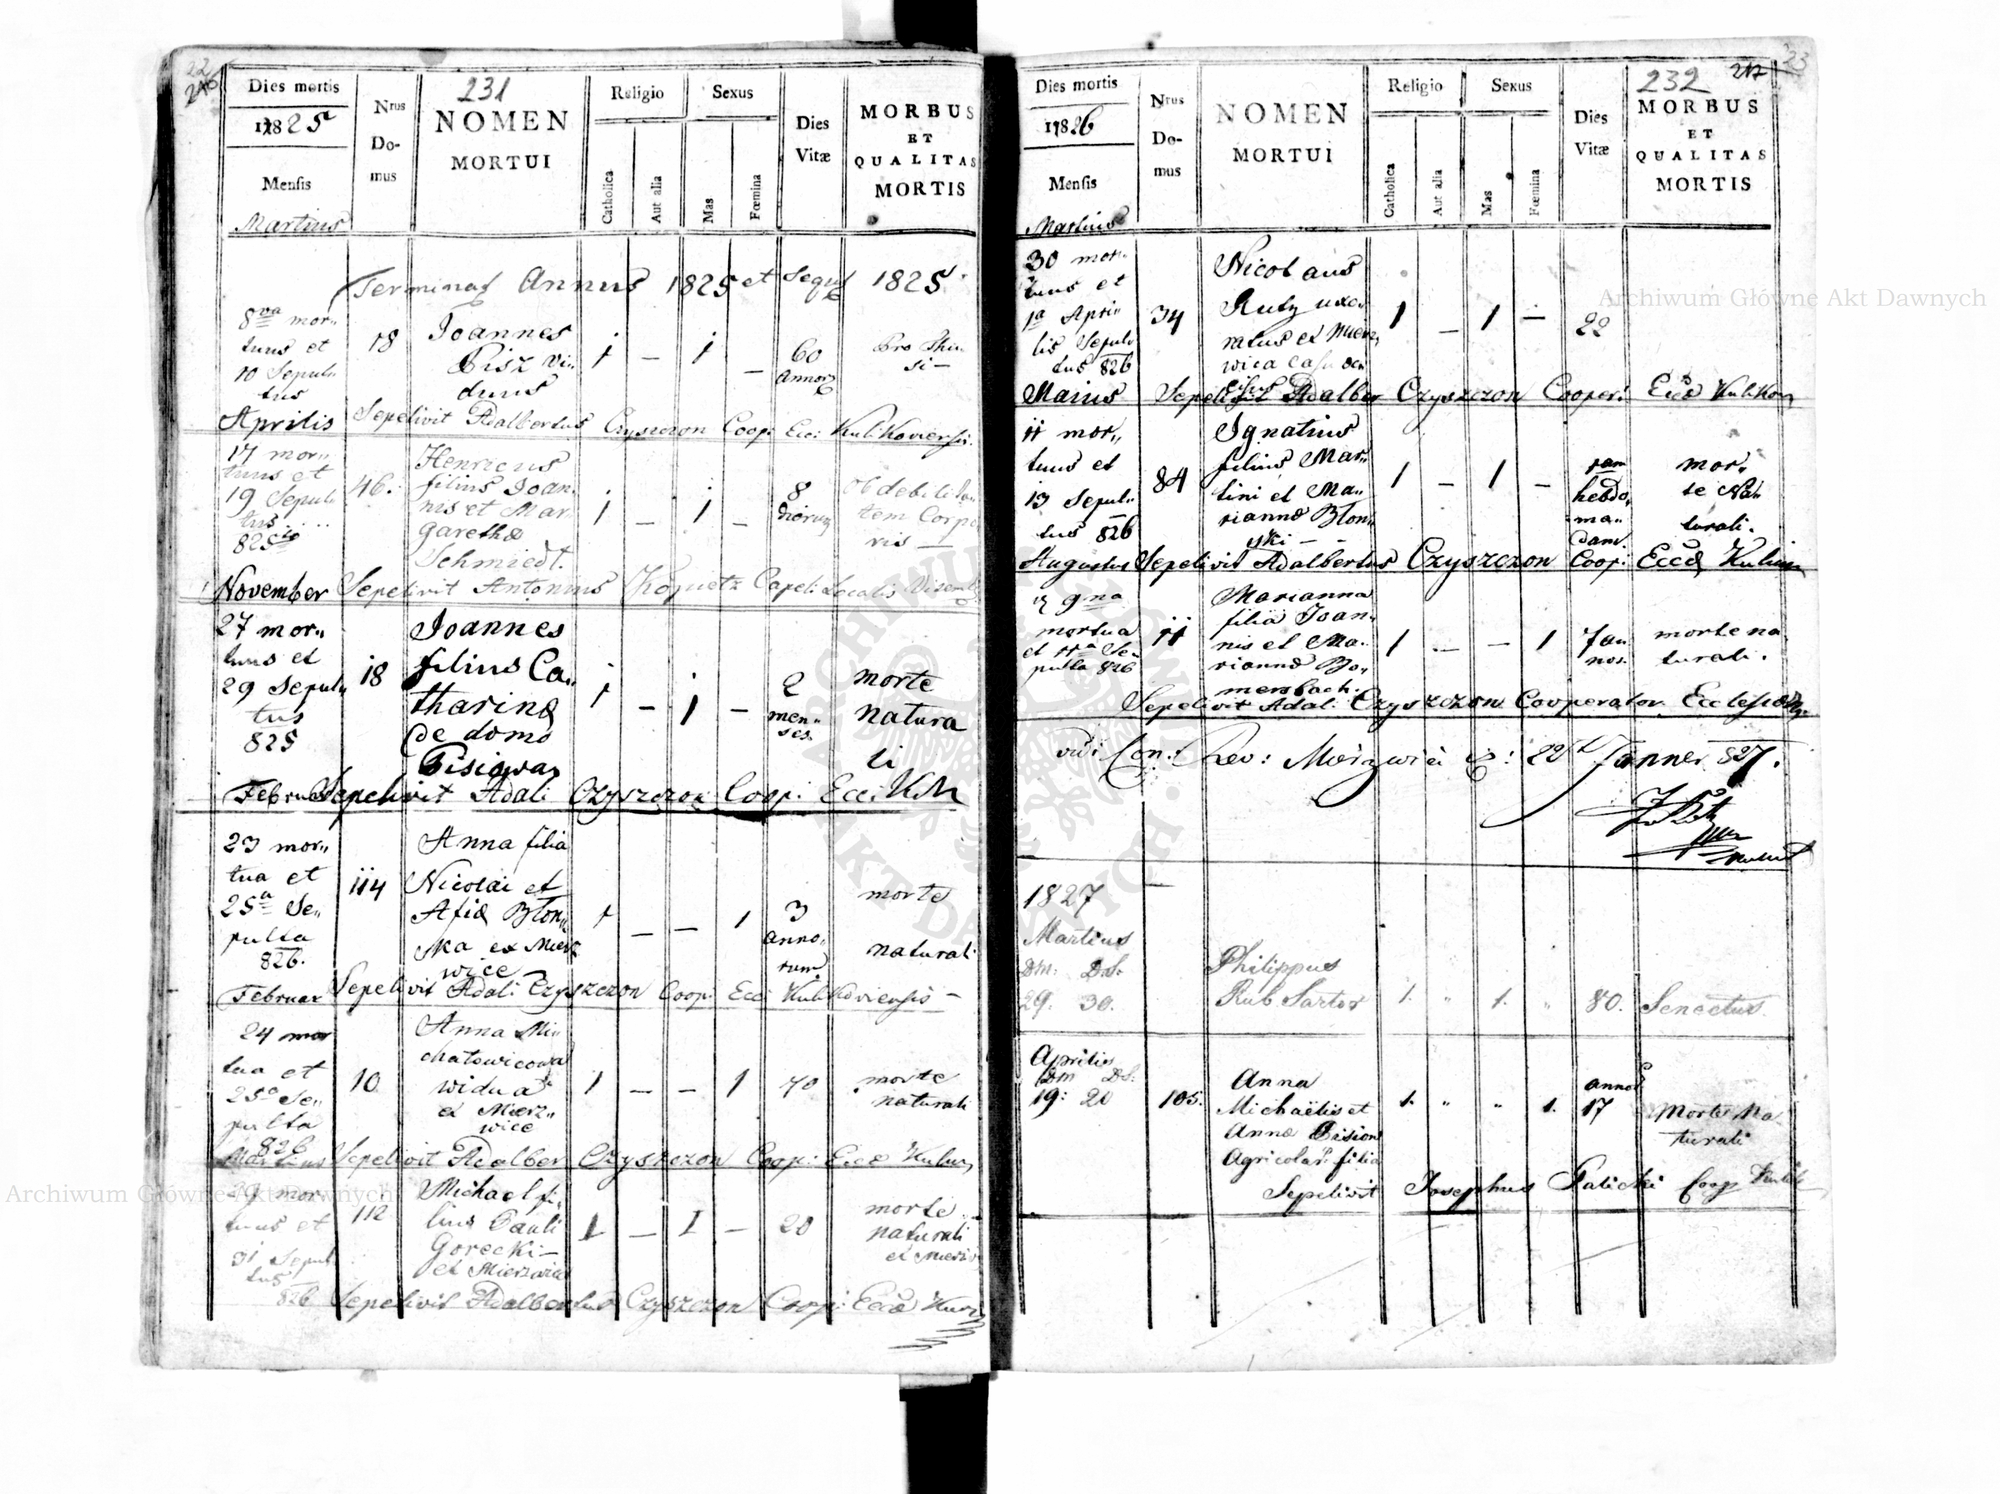 22
Dies mortis
1825
Mensis
Martius
Nrus
Do-
mus
231
NOMEN
MORTUI
Religio
Catholica
Aut alia
Sexus
Mas
Fœmina
Dies
Vitæ
MORBUS
ET
QUALITAS
MORTIS
Annus 1825 et 1825
8va mor„
tuus et
10 Sepul„
tus
18
Joannes
Pisz vi„
duus
1 — 1 —
60
annor
Aprilis Sepelivit Adalbertus Czyszczon Coop: Ecc: Kulikoviensis
17 mor„
tuus et
19 Sepul„
tus
825
46.
Henricus
filius Joan„
nis et Mar„
garethæ
Schmiedt.
1 — 1 —
8
dierum
ob debilita„
tem Corpo
ris —
November Sepelivit Antonius Capel: Localis
27 mor„
tuus et
29 Sepul„
tus
825
18
Joannes
filius Ca„
tharinæ
de domo
1 — 1 —
2
men„
ses.
morte
natura
li
Februar Sepelivit Adal: Czyszczon Coop: Ecc:
23 mor„
tua et
25a Se„
pulta
826.
114
Anna filia
Nicolai et
Błon„
ska ex Mierz
wice
1 — — 1
3
anno„
rum
morte
naturali
Februar Sepelivit Adal: Czyszczon Coop: Ecc: Kulikoviensis —
24 mor
tua et
25a Se„
pulta
826
10
Anna Mi„
chałowicowa
widua
ex Mierz„
wice
1 — — 1
70
morte
naturali
Martius Sepelivit Adalber Czyszczon Coop: Eccæ
29 mor
tuus et
31 Sepul
tus
826
112
Michael fi„
lius Pauli
Gorecki —
ex Mierzwice
1 — 1 —
20
morte
naturali
Sepelivit Adalbertus Czyszczon Coop: Eccæ
23
Dies mortis
1826
Mensis
Martius
Nrus
Do-
mus
NOMEN
MORTUI
Religio
Catholica
Aut alia
Sexus
Mas
Fœmina
Dies
Vitæ
232
MORBUS
ET
QUALITAS
MORTIS
30 mor„
tuus et
1a Apri„
lis Sepul„
tus 826
34
Nicolaus
uxo„
ratus ex Mierz„
wica casu oc„
cisus
1 — 1 —
22
Maius Sepelivit Adalber Czyszczon Cooper: Eccæ
11 mor„
tuus et
13 Sepul„
tus 826
84
Ignatius
filius Mar„
tini et Ma„
riannæ Błon„
ski —
1 — 1 —
hebdo„
ma„
dam.
mor„
te Na„
turali.
Augustus Sepelivit Adalbertus Czyszczon Coop: Eccæ
9na
mortua
et 11a Se„
pulta 826
11
Marianna
filia Joan„
nis et Ma„
riannæ Bo„
mersbach.
1 — — 1
7 an
nos.
morte na
turali.
Sepelivit Adal: Czyszczon Cooperator Ecclesiæ
vidi Can: Rev: 22 Janner 827.
1827
Martius
Dm: DS:
29: 30.
—
Philippus
Rub Sartor
1. „ 1. „
80.
Senectus.
Aprilis
Dm DS:
19: 20
105.
Anna
Michaëlis et
Annæ
Agricolar: filia
1. „ „ 1.
annor
17
Morte Na
turali
Sepelivit Josephus Galicki Coop
Archiwum Główne Akt Dawnych
Archiwum Główne Akt Dawnych
ARCHIWUM GŁÓWNE AKT DAWNYCH